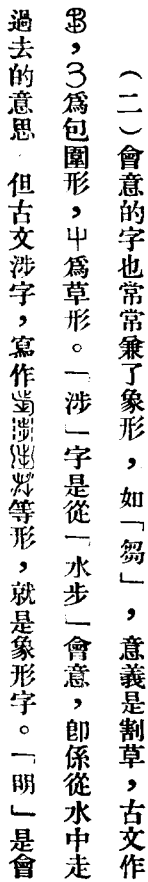 （二）會意的字也常常兼了象形，如「芻」，意義是割草，古文作
，𠄎爲包圍形，屮爲草形。「涉」字是從「水步」會意，卽係從水中走
過去的意思 但古文涉字，寫作等形，就是象形字。「明」是會